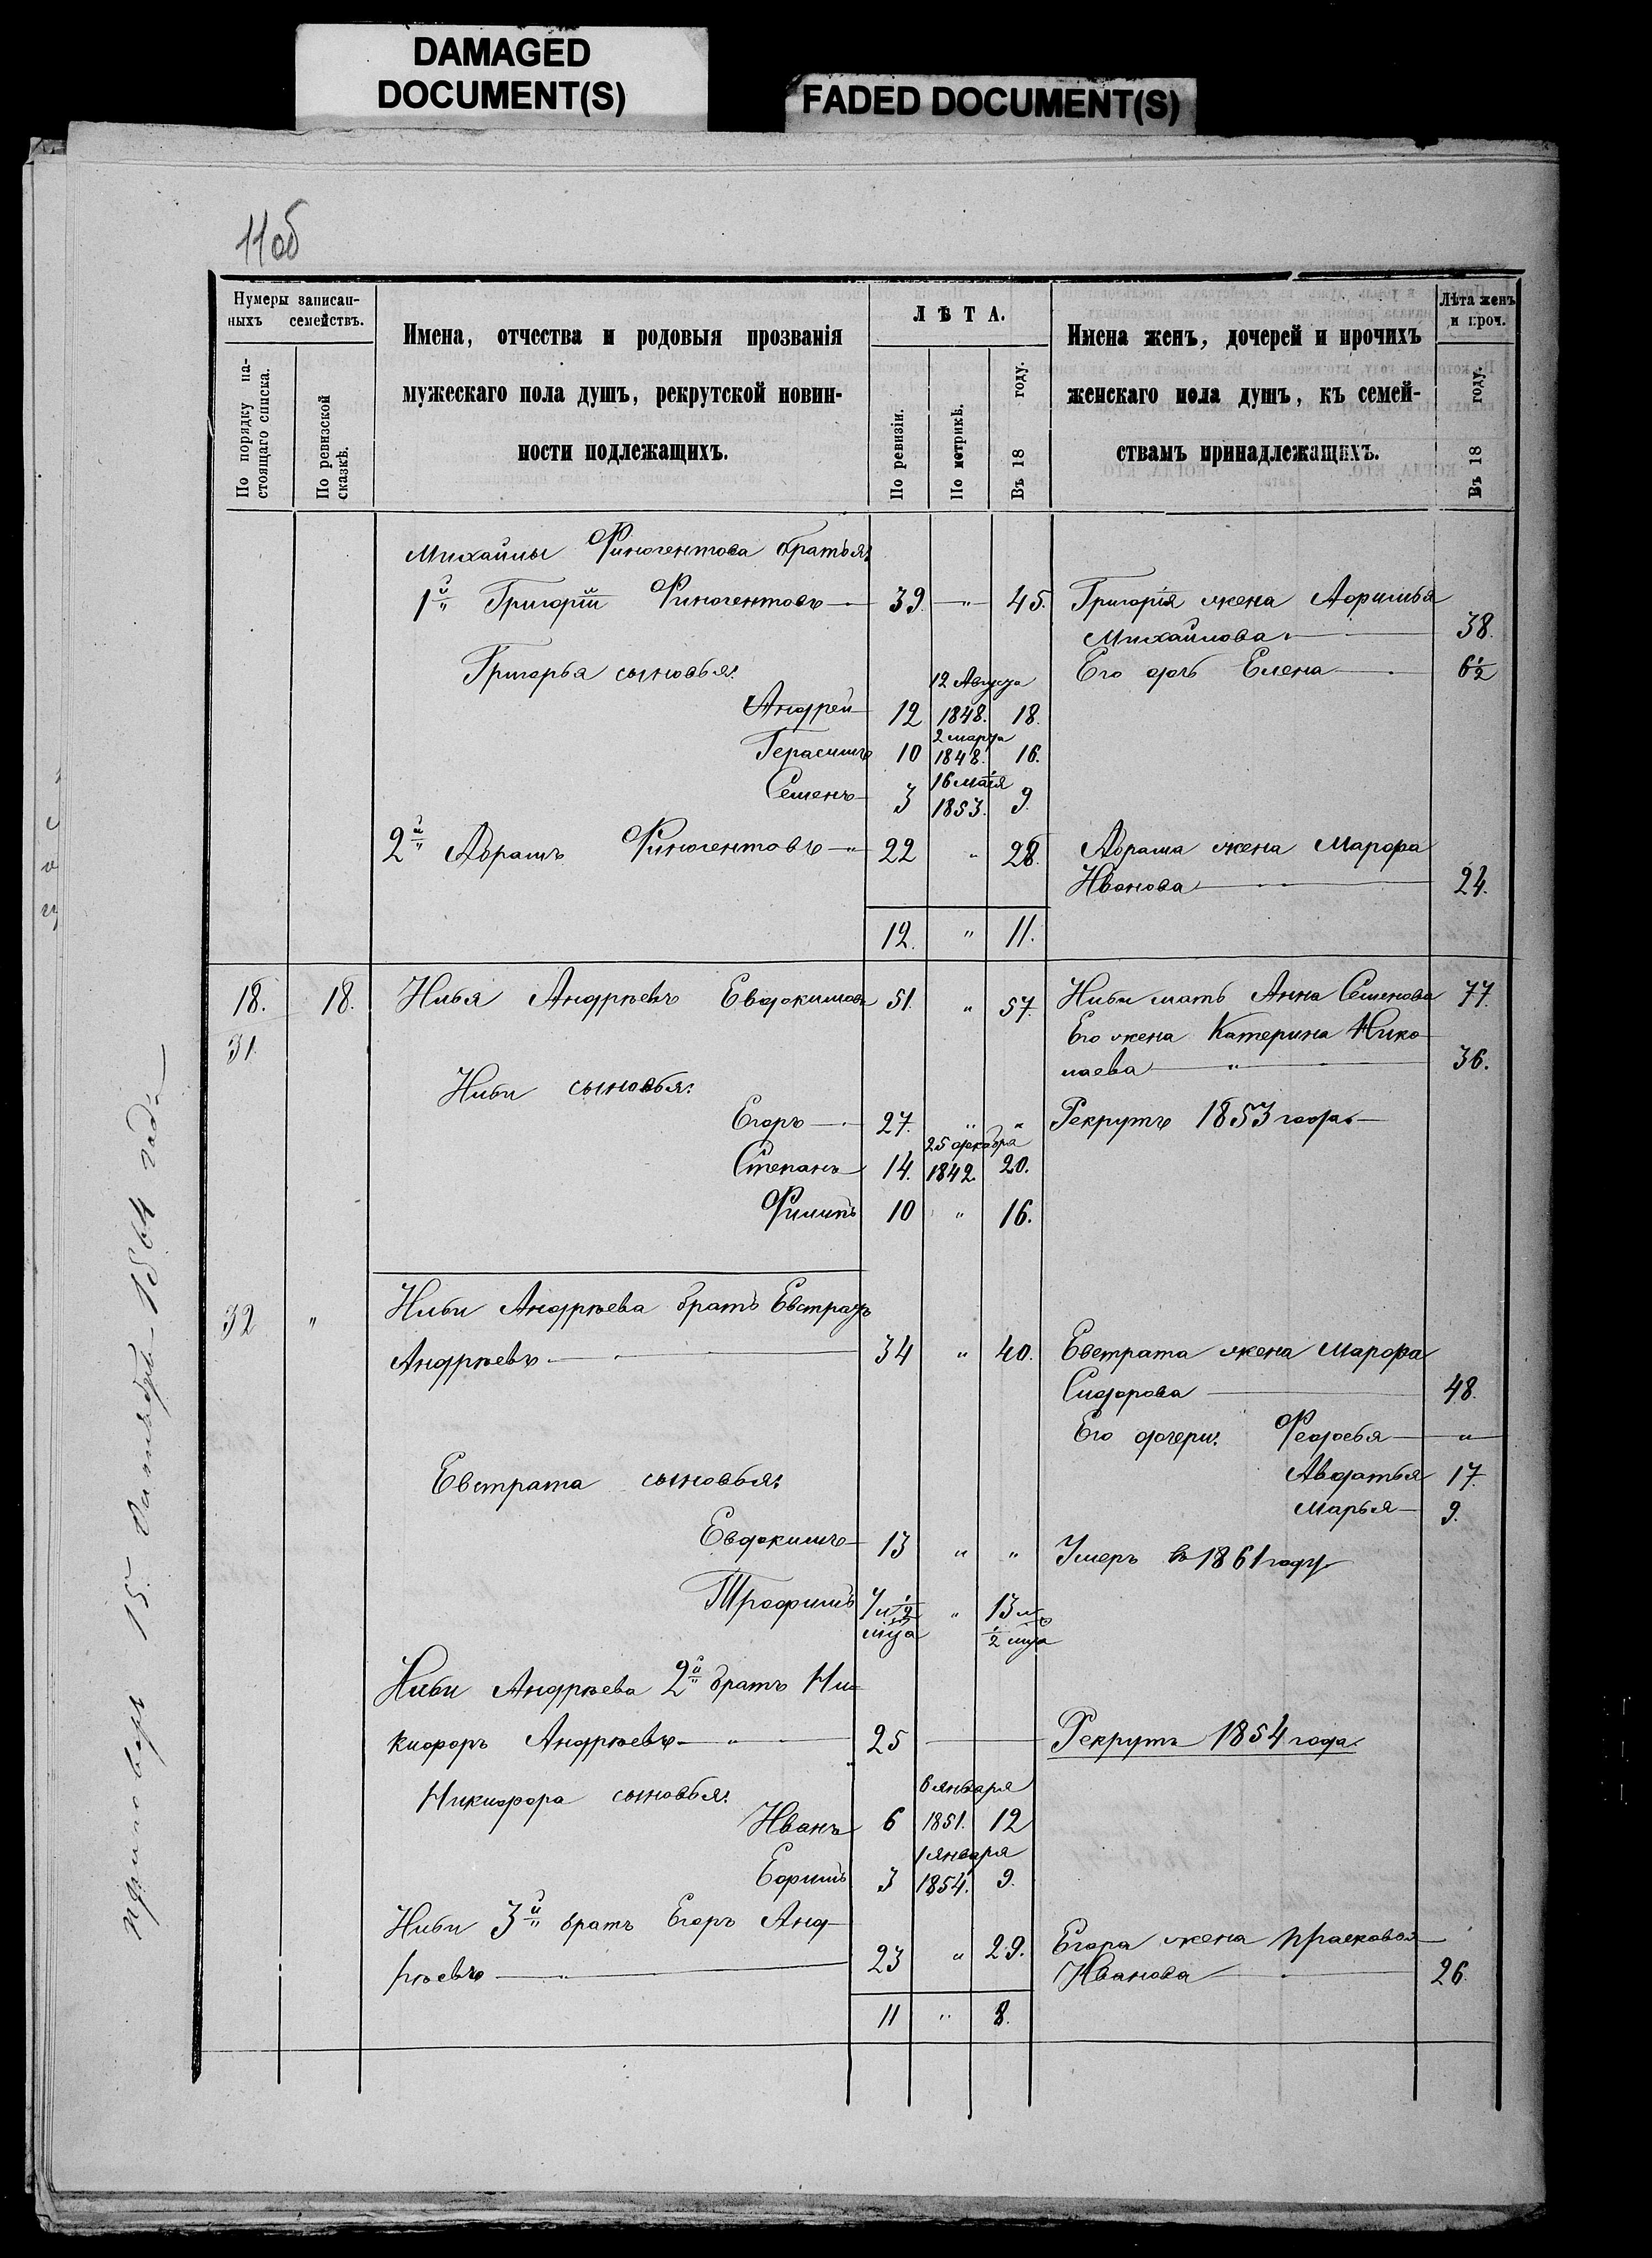 DAMAGED
DOCUMENT(S)
FADED DOCUMENT(S)
11об
Нумеры записан-
ныхъ семействъ.
По порядку на-
стоящаго списка.
По ревизской
сказкѣ.
Имена, отчества и родовыя прозванія
мужескаго пола душъ, рекрутской повин-
ности подлежащихъ.
ЛѢТА.
По ревизіи.
По метрикѣ.
Въ 18 году.
Имена женъ, дочерей и прочихъ
женскаго пола душъ, къ семей-
ствамъ принадлежащихъ.
Лѣта женъ
и проч.
Въ 18 году.
Михайлы Финогентова братья:
1й Григорій Финогентовъ — 39. — " — 45. Григорія жена Афимья
Михайлова. — 38.
Григорья сыновья: Его дочь Елена — 6½
12 Августа
Андрей 12 1848. 18.
2 марта
Герасимъ 10 1848. 16.
16 маія
Семенъ 3 1853. 9.
2й Абрамъ Финогентовъ — " 22 " 28. Абрама жена Марфа
Иванова — 24.
12. " 11.
18. 18. Илья Андрѣевъ Евдокимовъ 51. " 57. Ильи мать Анна Семенова 77.
31. Его жена Катерина Нико-
лаева — " — 36.
Ильи сыновья:
Егоръ — 27. " " Рекрутъ 1853 года. —
25 декабря
Степанъ 14. 1842. 20.
Филипъ 10 " 16.
32 " Ильи Андрѣева братъ Евстратъ
Андрѣевъ — 34 " 40. Евстрата жена Марфа
Сидорова — 48.
Его дочери: Федосья — " —
Евстрата сыновья: Авдотья 17.
Марья — 9.
Евдокимъ — 13 " " Умеръ въ 1861 году
Трофимъ 7 и ½ " 13 и
мца ½ мца
Ильи Андрѣева 2й братъ Ни-
кифоръ Андрѣевъ — " — 25 — Рекрутъ 1854 года.
Никифора сыновья: 6 января
Иванъ 6 1851. 12
1 января
Ефимъ 3 1854. 9.
Ильи 3й братъ Егоръ Анд-
рѣевъ — " — 23 " 29. Егора жена Прасковья —
Иванова — 26.
11 " 8.
15 Октября 1864 года